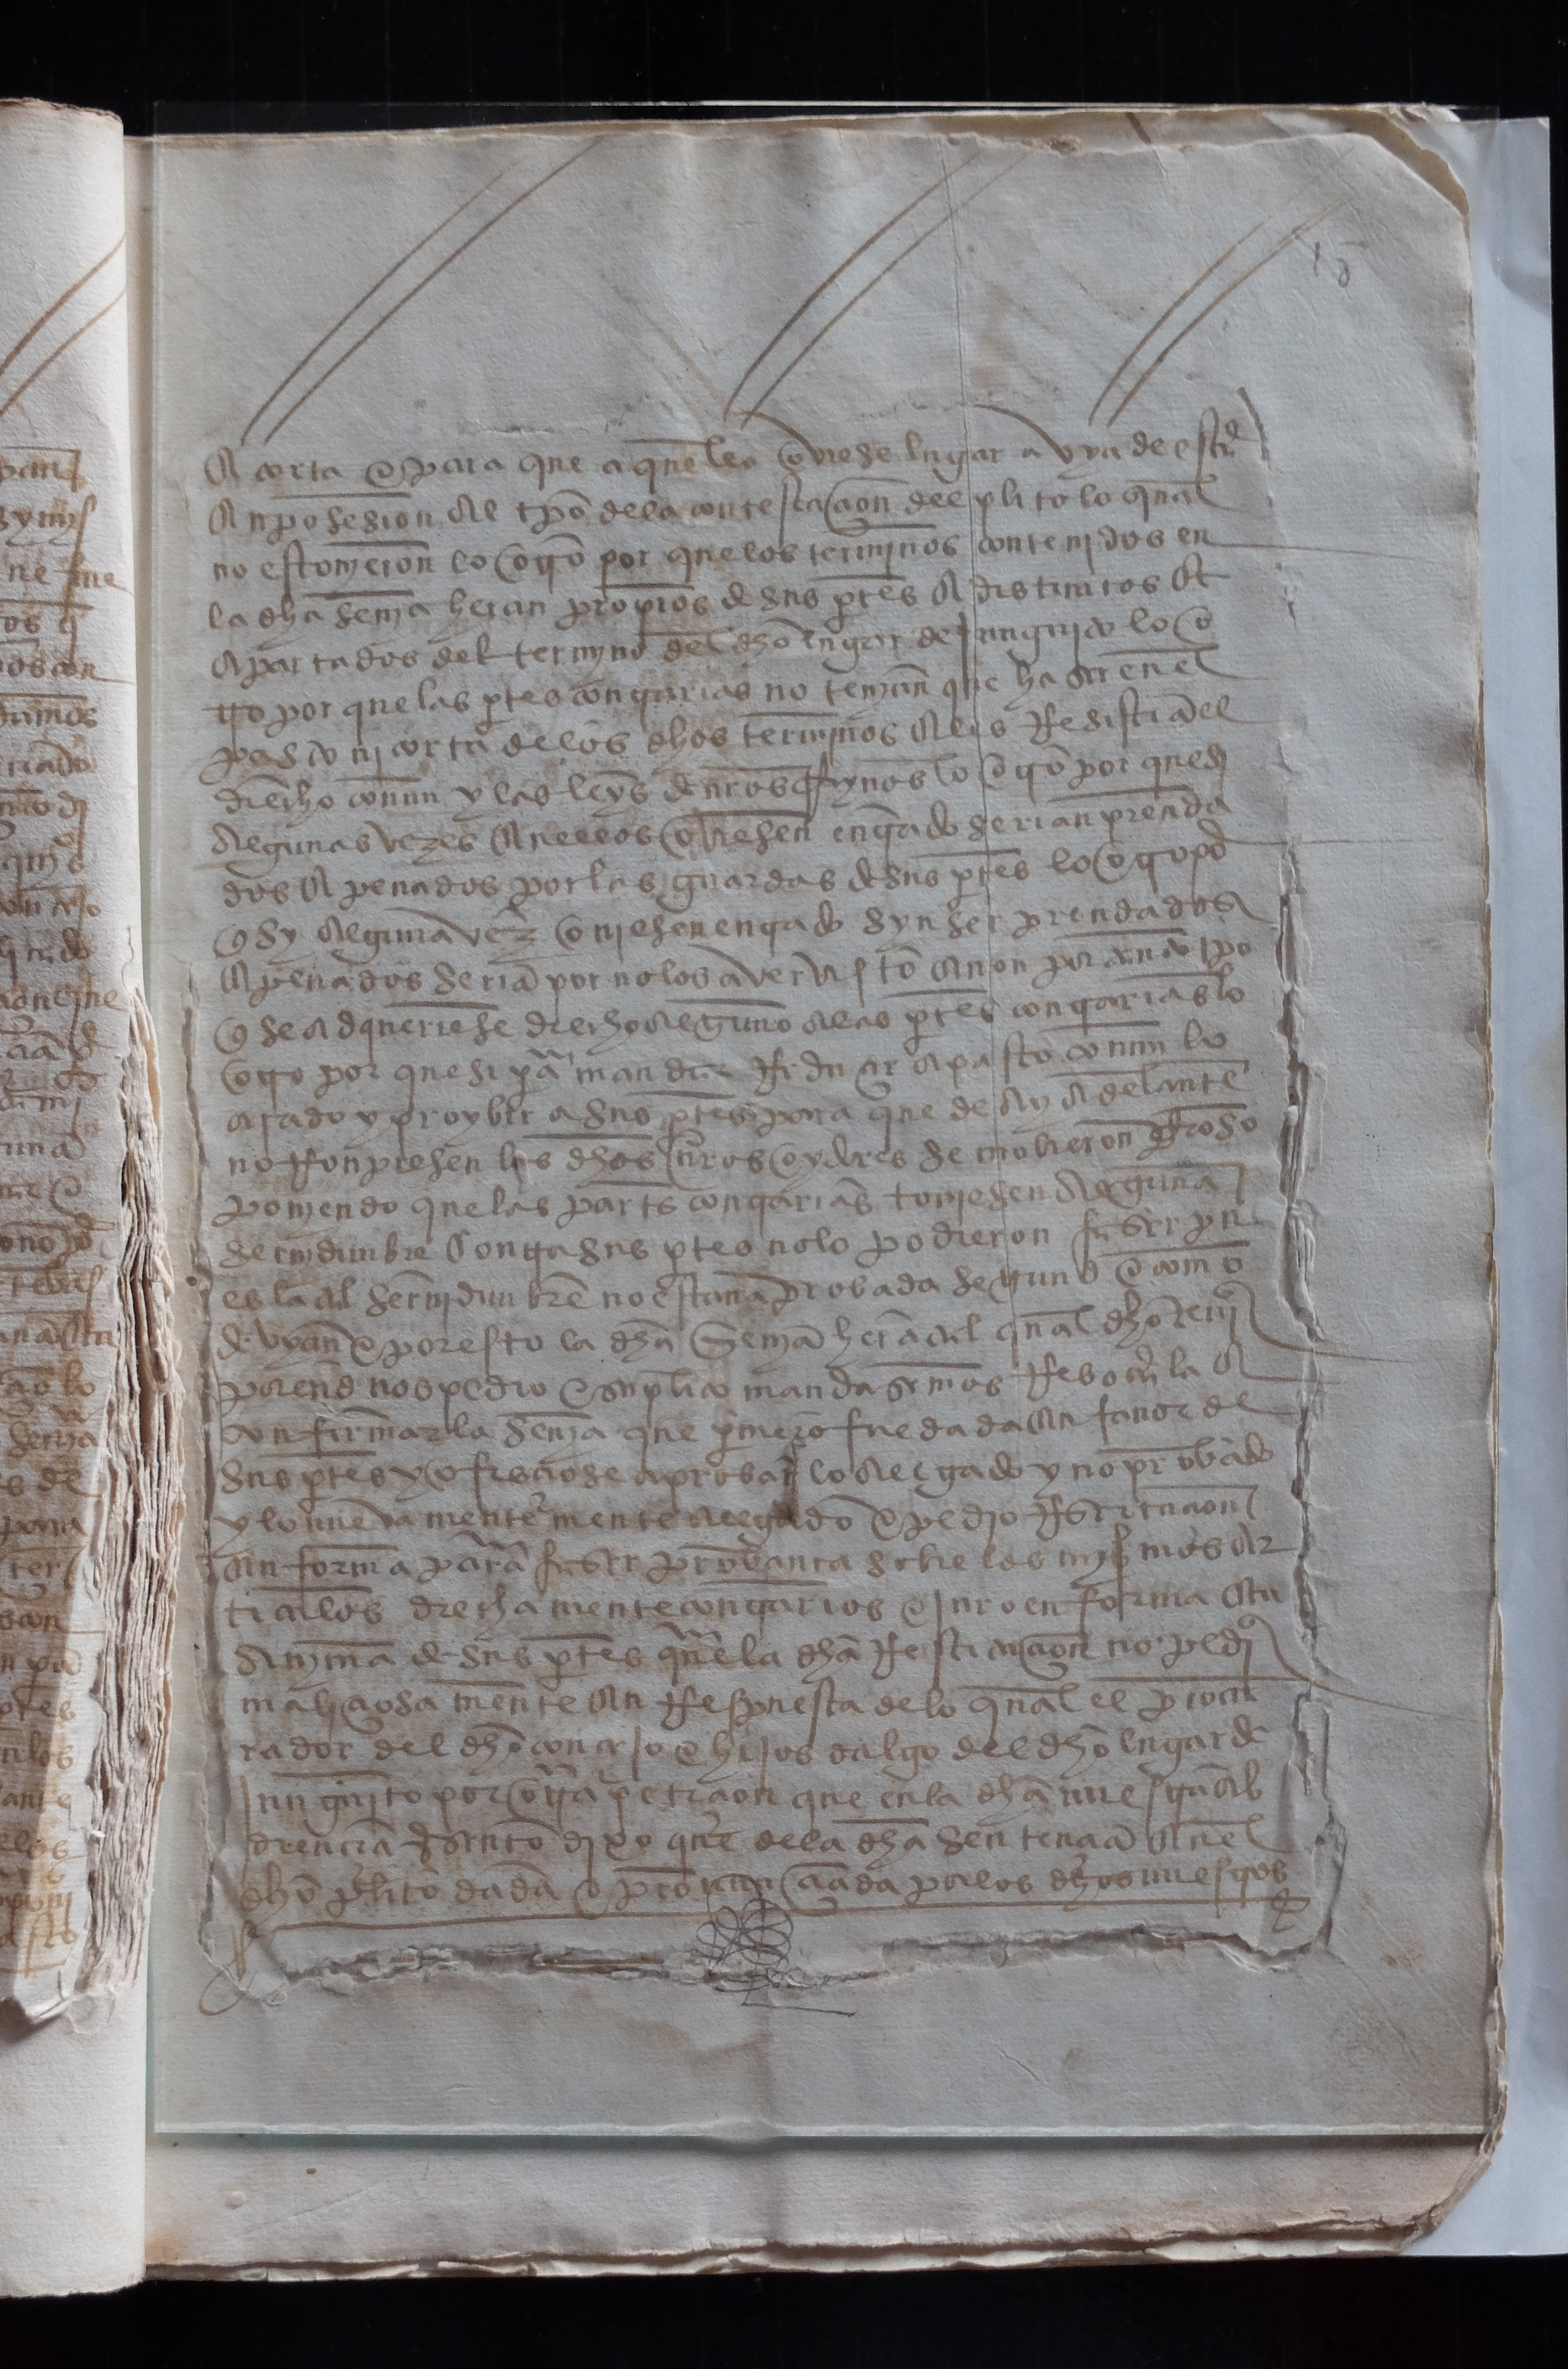 15
e corta e para que aquello oviese lugar avya de estar
en posesion al tpo de la contestacion del plito lo qual
no estovieron lo otro por que los terminos contenidos en
la dha sentençia heran propios de sus ptes e distintos e
apartados del termyno del dho lugar de junguitu lo o
tro por que las ptes contrarias no tenian que haser en el
pasto ni corta de los dhos terminos a les resistia el
derecho comun y las leys de nros rreynos lo otro por que sy
algunas vezes en ellos oviesen entrado serian prenda
dos e penados por las guardas de sus ptes lo otro por
q sy alguna vez oviesen entrado syn ser prendados e
penados seria por no los aver visto e non por tanto tpo
q se adqueriese derecho alguno a las ptes contrarias lo
otro por que si pa mandar rreduzir a pasto comun lo
arado y proybir a sus ptes para que de ay adelante
no rronpiesen los dhos nros oydores se movieron
poniendo que las partes contrarias toviesen alguna
servidunbre contra sus ptes no lo podieron haser pu
es la tal servidunbre no estava probada segund e como
devyan e por esto la dha sentençia hera tal qual dho tenia
porende nos pedio e suplico mandasemos rrevocar la e
confirmar la sentençia que primero fue dada en favor de
sus ptes y ofresciose a probar lo alegado y no probado
y lo nuevamente mente alegado e pedio rrestituçion
en forma para haser probança sobre los mysmos ar
ticulos derechamente contrarios e juro en forma en
anyma de sus ptes que la dha rrestituçion no pedia
maliçiosamente en rrespuesta de lo qual el procu
rador del dho conçejo e hijos dalgo del dho lugar de
junguitu por otra petiçion que en la dha nuestra ab
diençia presento dixo que de la dha sentençia en el
dho plito dada e pronunçiada por los dhos nuestros